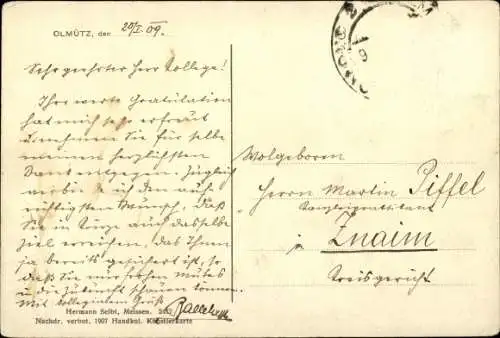 OLMÜTZ, den 20/I. 09.
Sehr geehrter Herr Kollege!
Ihre werte Gratulation
hat mich sehr erfreut
Nehmen Sie für selbe
meinen herzlichsten
Dank entgegen. Zugleich
verbinde ich den auf-
richtigsten Wunsch, daß
Sie in Kürze auch dasselbe
Ziel erreichen, das Ihnen
ja bereits gesichert ist, so
daß Sie nur frohen Mutes
in die Zukunft schauen können.
Mit kollegialem Gruß
Wolgeboren
Herrn Martin Piffel
Kanzleiassistent
in Znaim
Kreisgericht
Hermann Seibt, Meissen.
Nachdr. verbot. 1907 Handkol. Künstlerkarte